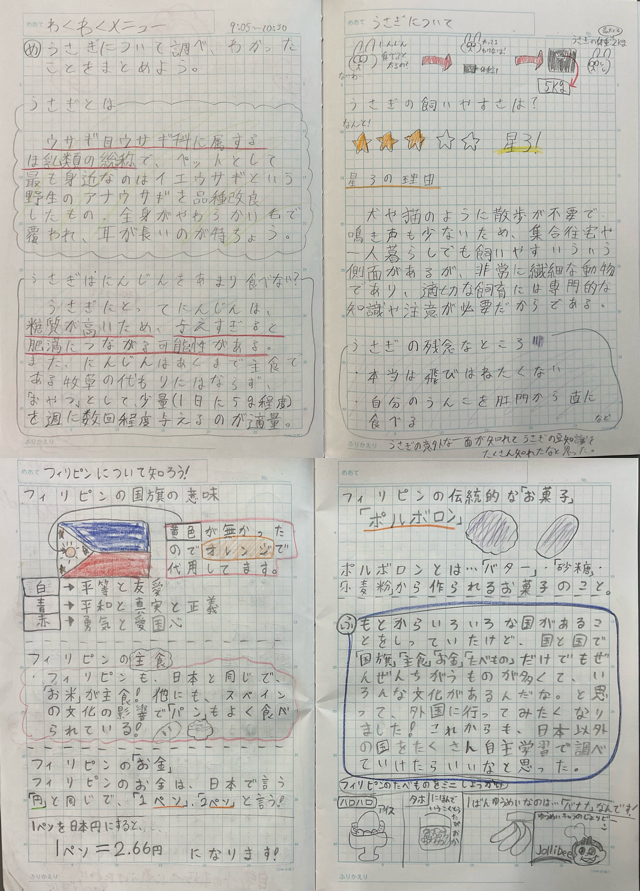 めあて わくわくメニュー 9:05~10:20
め うさぎについて調べ、わかった
ことをまとめよう。
うさぎとは
ウサギ目ウサギ科に属する
ほ乳類の総称で、ペットとして
最も身近なのはイエウサギという
野生のアナウサギを品種改良
したもの。全身がやわらかい毛で
覆われ、耳が長いのが特ちょう。
うさぎはにんじんをあまり食べない?
うさぎにとってにんじんは、
糖質が高いため、与えすぎると
肥満につながる可能性がある。
また、にんじんはあくまで主食で
ある牧草の代もりにはならず、
おやつとして、少量(1日に5g程度)
を週に数回程度与えるのが適量。
ふりかえり
めあて うさぎについて
5kg
うさぎの飼いやすさは?
なんと!
星3!
星3の理由
犬や猫のように散歩が不要で、
鳴き声も少ないため、集合住宅や
一人暮らしでも飼いやすいという
側面があるが、非常に繊細な動物
であり、適切な飼育には専門的な
知識や注意が必要だからである。
うさぎの残念なところ
・本当は飛びはねたくない
・自分のうんこを肛門から直に
食べる
など
うさぎの意外な一面が知れてうさぎの豆知識を
たくさん知れたなと思った。
ふりかえり
めあて フィリピンについて知ろう!
フィリピンの国旗の意味
黄色が無かった
のでオレンジで
代用してます。
白→平等と友愛
青→平和と真実と正義
赤→勇気と愛国心
フィリピンの主食
・フィリピンも、日本と同じで、
「お米」が主食!他にも、スペイン
の文化の影響で「パン」もよく食べ
られている!
フィリピンの「お金」
フィリピンのお金は、日本で言う
「円」と同じで、「1ペソ」、「2ペソ」と言う!
1ペソを日本円にすると...
1ペソ=2.66円 になります!
ふりかえり
めあて
フィリピンの伝統的な「お菓子」
「ポルボロン」
ポルボロンとは…「バター」・「砂糖」・
小麦粉から作られるお菓子のこと。
ふ もとからいろいろな国があるこ
とをしっていたけど、国と国で
「国旗」「主食」「お金」「たべもの」だけでもぜ
んぜんちがうものが多くて、い
ろんな文化があるんだな。と思
って、外国に行ってみたくなり
ました!これからも、日本以外
の国をたくさん自主学習で調べ
ていけたらいいなと思った。
フィリピンのたべものをミニしょうかい
ハロハロ
アイス
タホ
1ばんゆうめいなのは…「バナナ」なんです!
Jollibee
ふりかえり